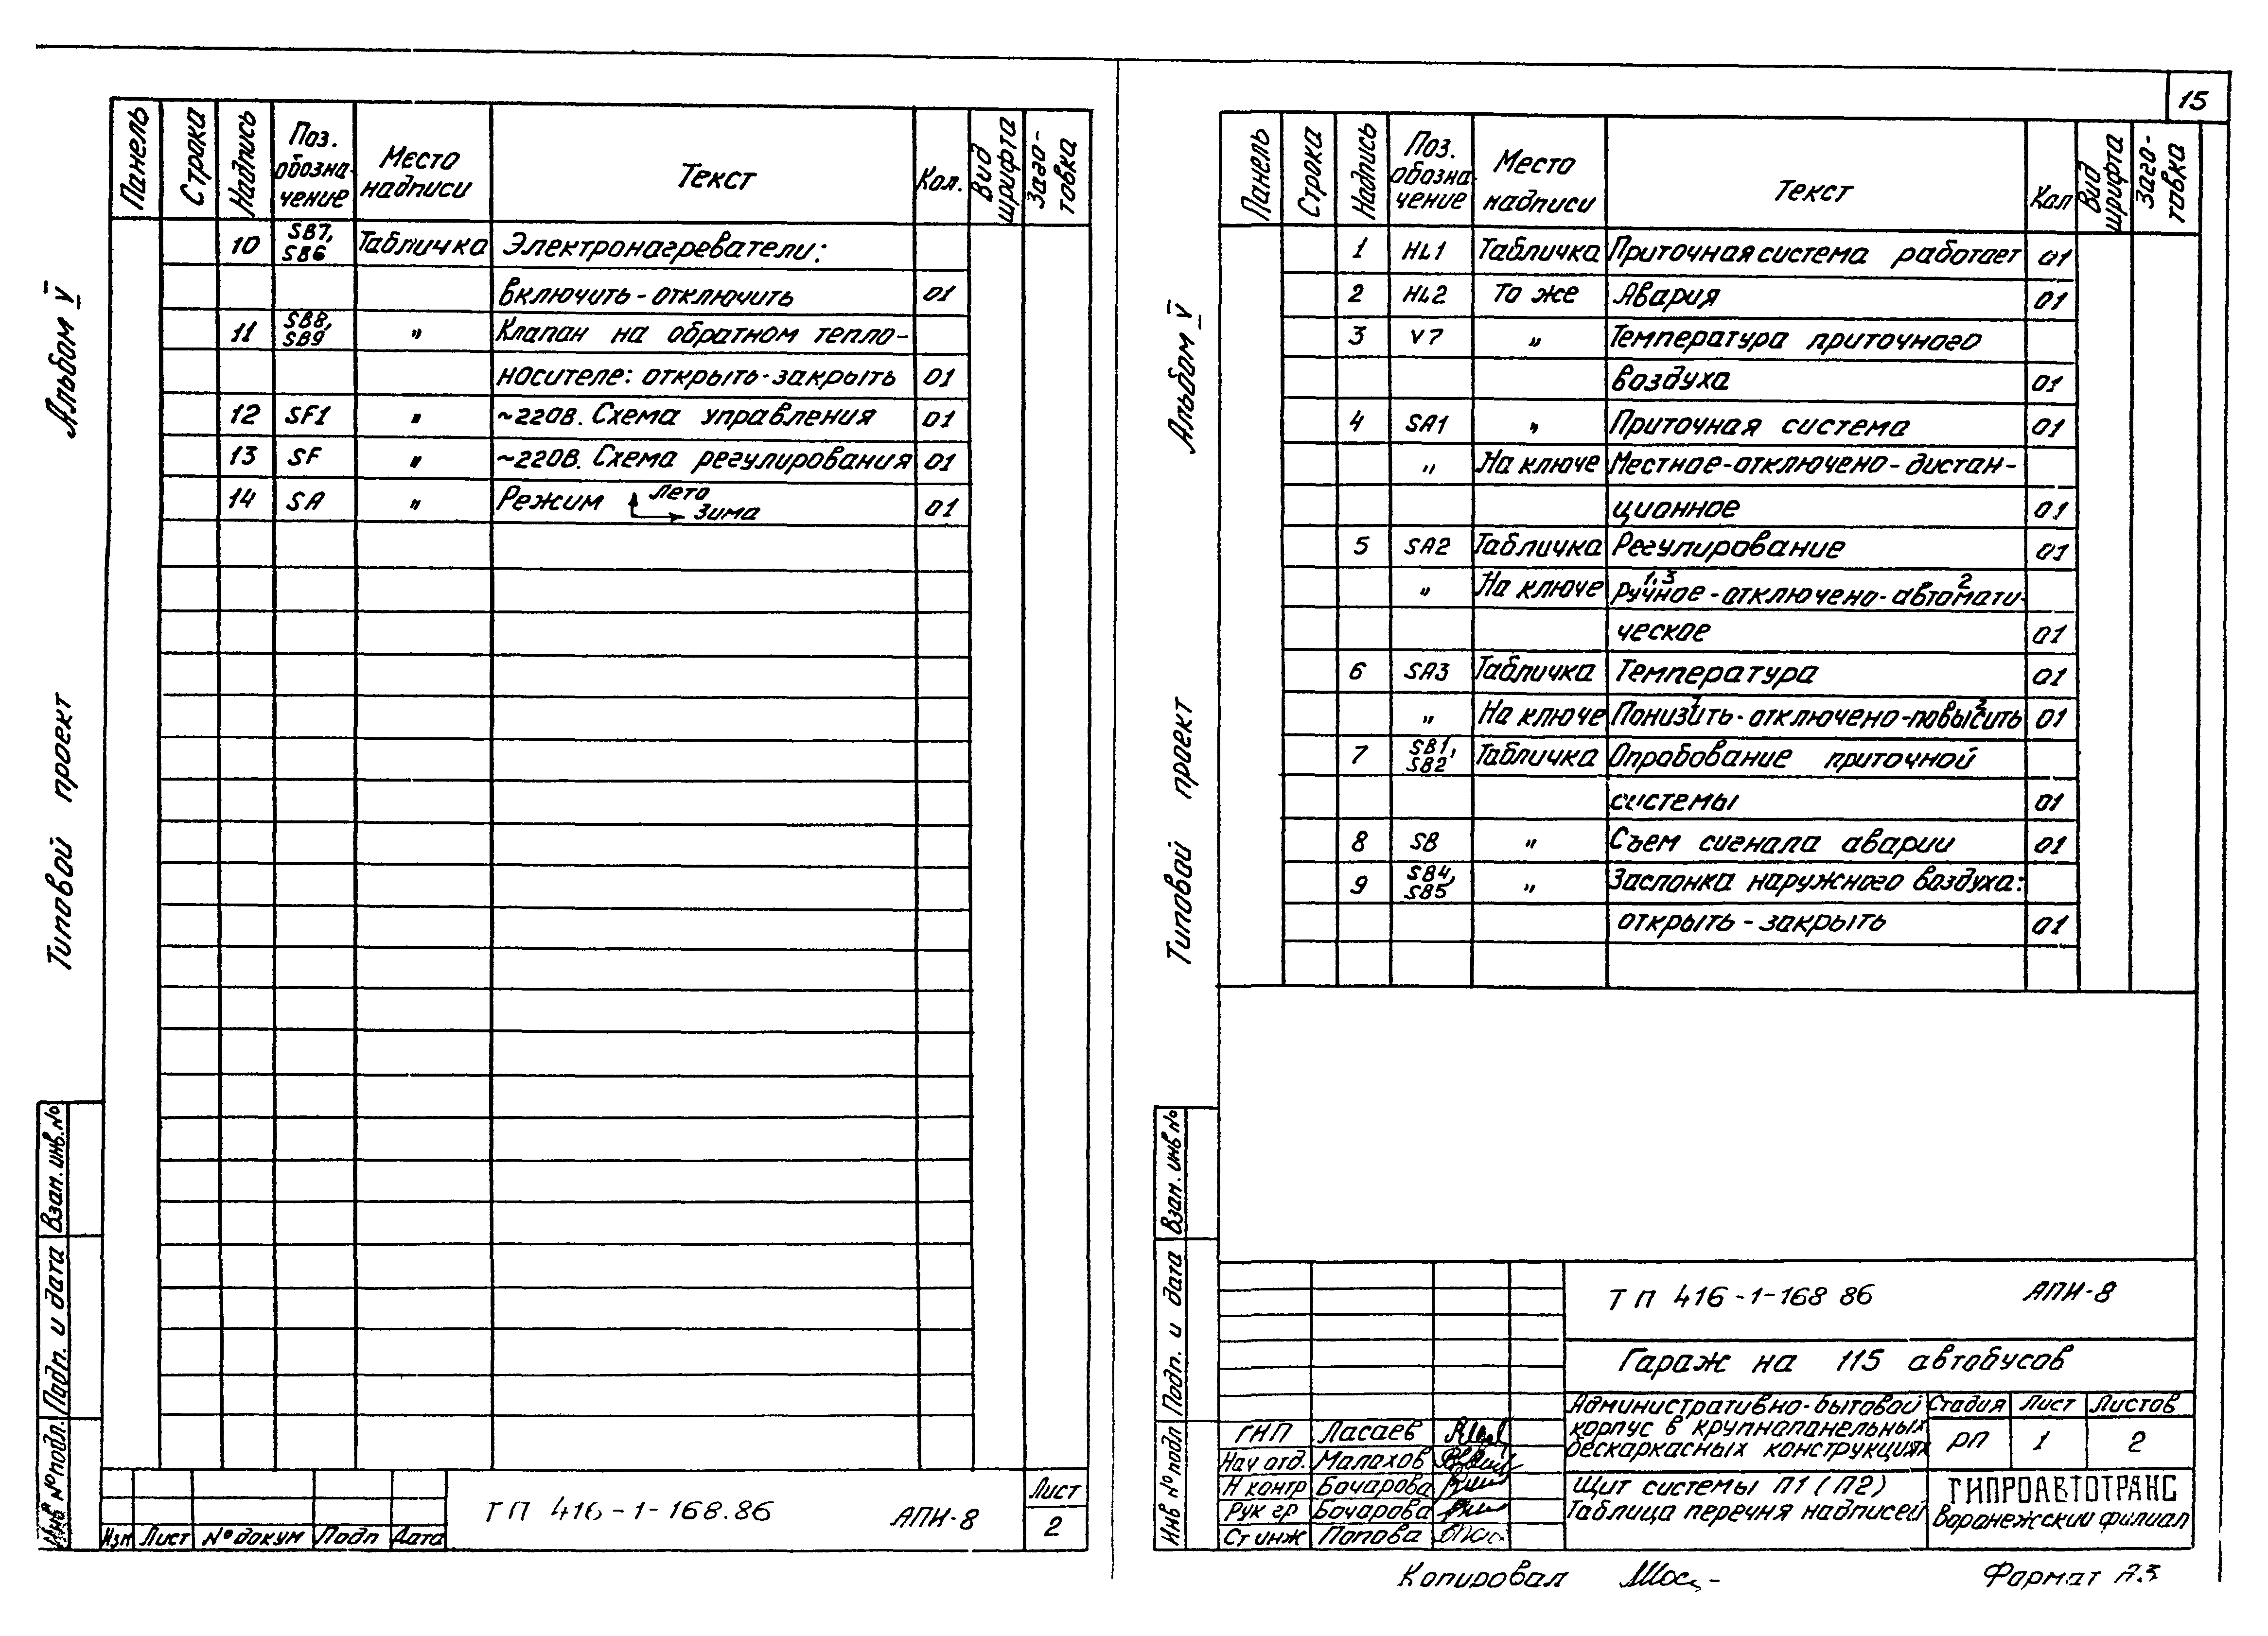 Альбом V
Типовой проект
Панель Строка Надпись Поз. обозна-чение Место надписи Текст Кол. Вид шрифта Заго-товка
10 SB7, SB6 Табличка Электронагреватели:
включить - отключить 01
11 SB8, SB9 " Клапан на обратном тепло-
носителе: открыть-закрыть 01
12 SF1 " ~220В. Схема управления 01
13 SF " ~220В. Схема регулирования 01
14 SA " Режим Лето Зима 01
Взам. инв. №
Подп. и дата
Инв № подл.
Изм Лист № докум Подп Дата
ТП 416-1-168.86 АПИ-8
Лист
2
15
Альбом V
Типовой проект
Панель Строка Надпись Поз. обозна-чение Место надписи Текст Кол Вид шрифта Заго-товка
1 HL1 Табличка Приточная система работает 01
2 HL2 То же Авария 01
3 V7 " Температура приточного
воздуха 01
4 SA1 " Приточная система 01
" На ключе Местное-отключено-дистан-
ционное 01
5 SA2 Табличка Регулирование 01
1,3 2
" На ключе Ручное-отключено-автомати-
ческое 01
6 SA3 Табличка Температура 01
1 2
" На ключе Понизить-отключено-повысить 01
7 SB1, SB2 Табличка Опробование приточной
системы 01
8 SB " Съем сигнала аварии 01
9 SB4, SB5 " Заслонка наружного воздуха:
открыть - закрыть 01
Взам. инв №
Подп. и дата
Инв № подл
ТП 416-1-168 86 АПИ-8
Гараж на 115 автобусов
Административно-бытовой
корпус в крупнопанельных
бескаркасных конструкциях
Стадия Лист Листов
РП 1 2
ГИП Ласаев
Нач отд. Малахов
Н контр Бочарова
Рук гр Бочарова
Ст инж Попова
Щит системы П1 (П2)
Таблица перечня надписей
ГИПРОАВТОТРАНС
Воронежский филиал
Копировал
Формат А3